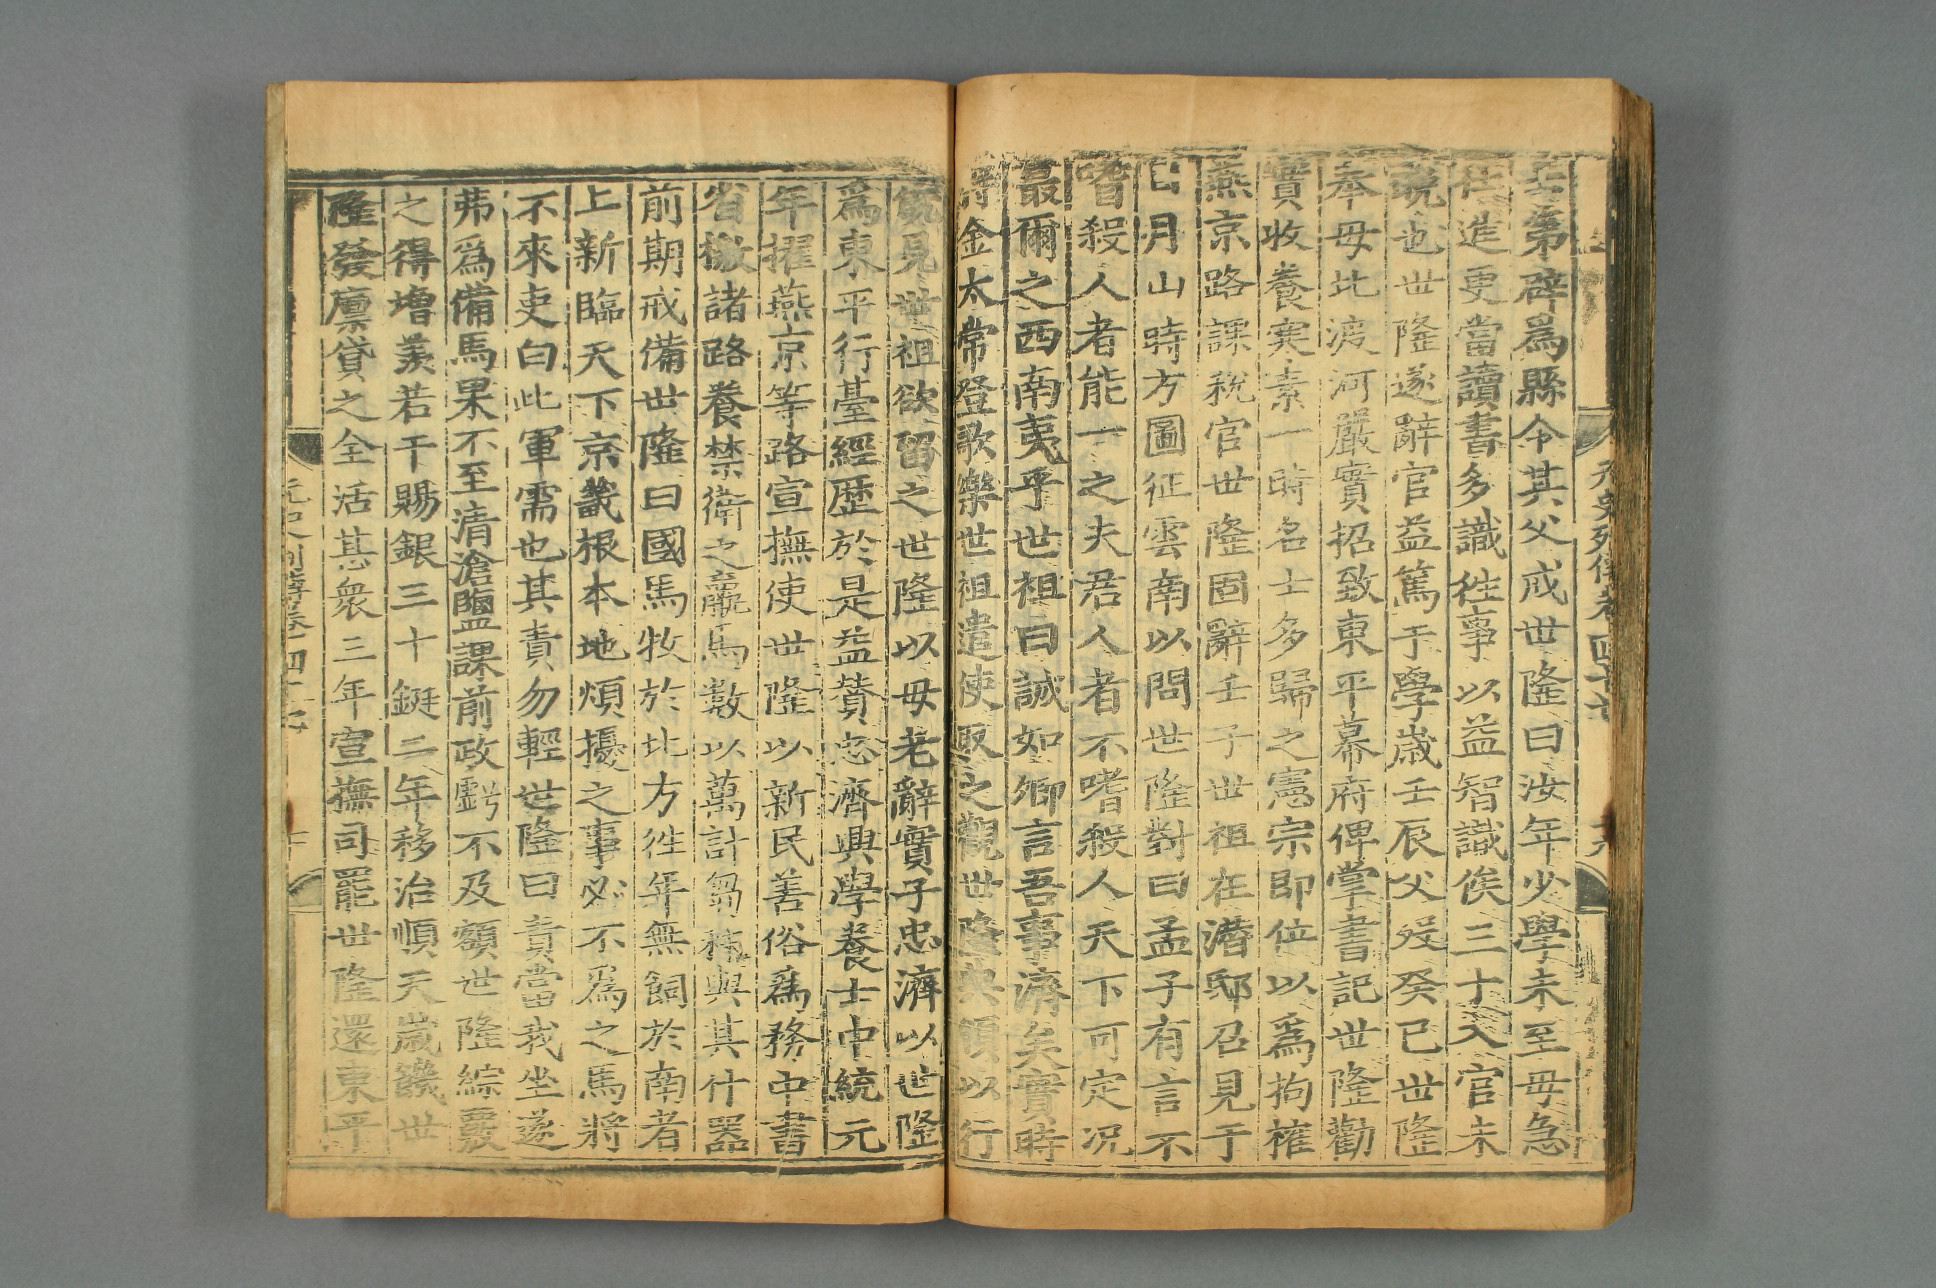 士第辟爲縣令其父戒世隆曰汝年少學未至毋急
仕進更當讀書多識徃事以益智識俟三十入官未
晩也世隆遂辭官益篤于學歳壬辰父歿癸巳世隆
奉母北渡河嚴實招致東平幕府俾掌書記世隆勸
實收養寒素一時名士多歸之憲宗即位以爲拘榷
燕京路課稅官世隆固辭壬子世祖在潛邸召見于
日月山時方圖征雲南以問世隆對曰孟子有言不
嗜殺人者能一之夫君人者不嗜殺人天下可定况
蕞爾之西南夷乎世祖曰誠如卿言吾事濟矣實時
得金太常登歌樂世祖遣使取之觀世隆典領以行
旣見世祖欲留之世隆以母老辭實子忠濟以世隆
爲東平行臺經歷於是益贊忠濟興學養士中統元
年擢燕京等路宣撫使世隆以新民善俗爲務中書
省檄諸路養禁衛之羸馬數以萬計芻秣與其什器
前期戒備世隆曰國馬牧於北方徃年無飼於南者
上新臨天下京畿根本地煩擾之事必不爲之馬將
不來吏白此軍需也其責勿輕世隆曰責當我坐遂
弗爲備馬果不至清滄鹽課前政虧不及額世隆綜覈
之得增羡若干賜銀三十鋌二年移治順天歳饑世
隆發廩貸之全活甚衆三年宣撫司罷世隆還東平
元史列傳卷四十七
元史列傳卷四十七